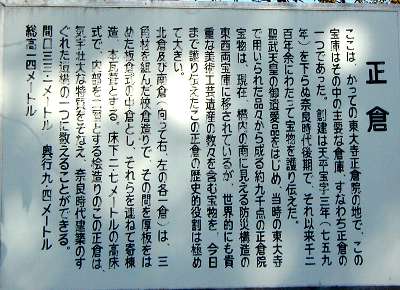 正倉
ここは、かつての東大寺正倉院の地で、この
宝庫はその中の主要な倉庫、すなわち正倉の
一つであった。創建は天平宝字三年(七五九
年)を下らぬ奈良時代後期で、それ以来十二
百年余にわたって宝物を護り伝えた。
聖武天皇の御遺愛品をはじめ、当時の東大寺
で用いられた品々から成る約九千点の正倉院
宝物は、現在、構内の南に見える防災構造の
東西両宝庫に移されているが、世界的にも貴
重な美術工芸遺産の数々を含む宝物を、今日
まで護り伝えたこの正倉の歴史的役割は極め
て大きい。
北倉及び南倉(向って右、左の各一倉)は、三
角材を組んだ校倉造りで、その間を厚板をは
めた板倉造の中倉とし、それらを連ねて寄棟
造、本瓦葺とする。床下二・七メートルの高床
式で、内部を二層とする総造りのこの正倉は、
気宇壮大な特質をそなえ、奈良時代建築のす
ぐれた遺構の一つに数えることができる。
間口三三・一メートル 奥行九・四メートル
総高一四メートル